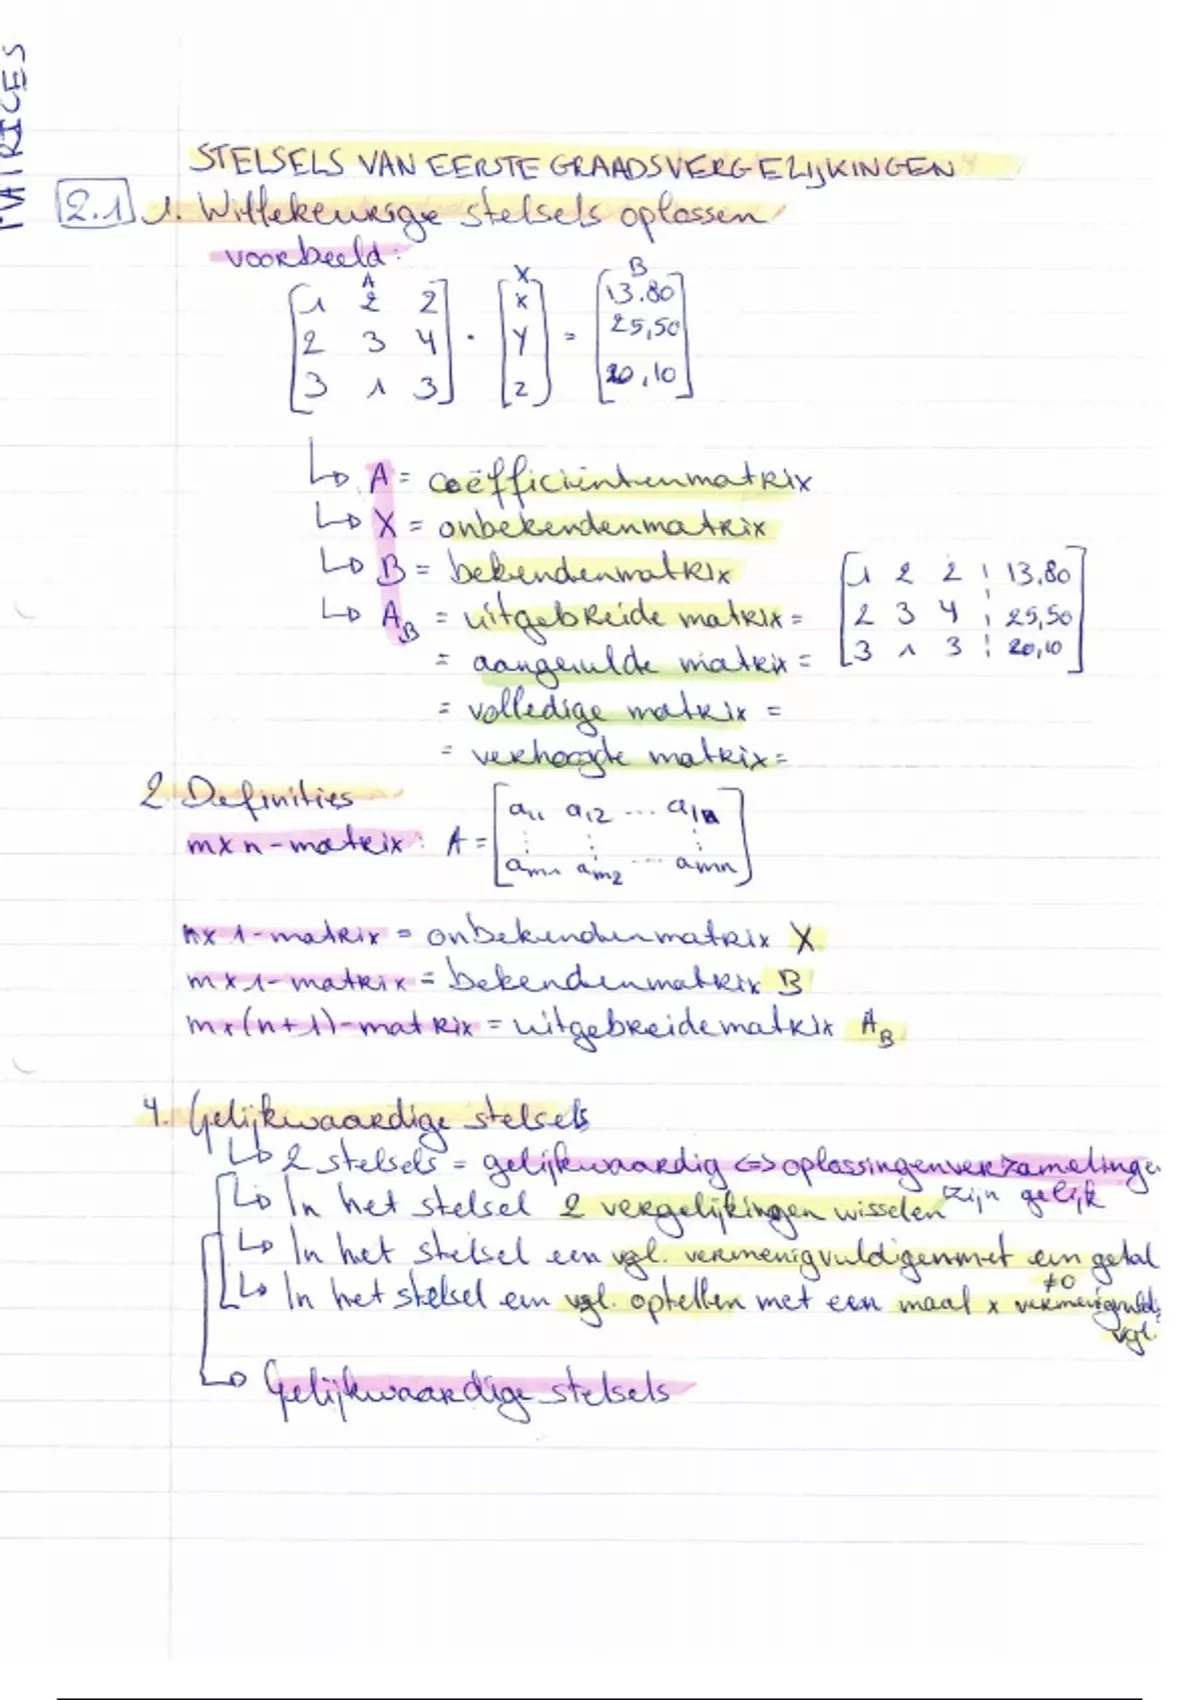 MATRICES
STELSELS VAN EERSTEGRAADSVERGELIJKINGEN
2.1 1. Willekeurige stelsels oplossen
voorbeeld:
A X B
[1 2 2] [x] [13.80]
[2 3 4] · [y] = [25,50]
[3 1 3] [z] [20,10]
↳ A = coëfficiëntenmatrix
↳ X = onbekendenmatrix
↳ B = bekendenmatrix
↳ A_B = uitgebreide matrix = [1 2 2 ¦ 13.80]
[2 3 4 ¦ 25,50]
[3 1 3 ¦ 20,10]
= aangevulde matrix =
= volledige matrix =
= verhoogde matrix =
2. Definities
m x n-matrix: A = [a11 a12 ... a1n]
[⋮ ⋮ ⋮]
[am1 am2 ... amn]
n x 1-matrix = onbekendenmatrix X
m x 1-matrix = bekendenmatrix B
m x (n+1)-matrix = uitgebreidematrix A_B
4. Gelijkwaardige stelsels
↳ 2 stelsels = gelijkwaardig <=> oplossingenverzamelinge
zijn gelijk
↳ In het stelsel 2 vergelijkingen wisselen
↳ In het stelsel een vgl. vermenigvuldigen met een getal
≠0
↳ In het stelsel een vgl. optellen met een maal x vermenigvuld.
vgl.
↳ Gelijkwaardige stelsels